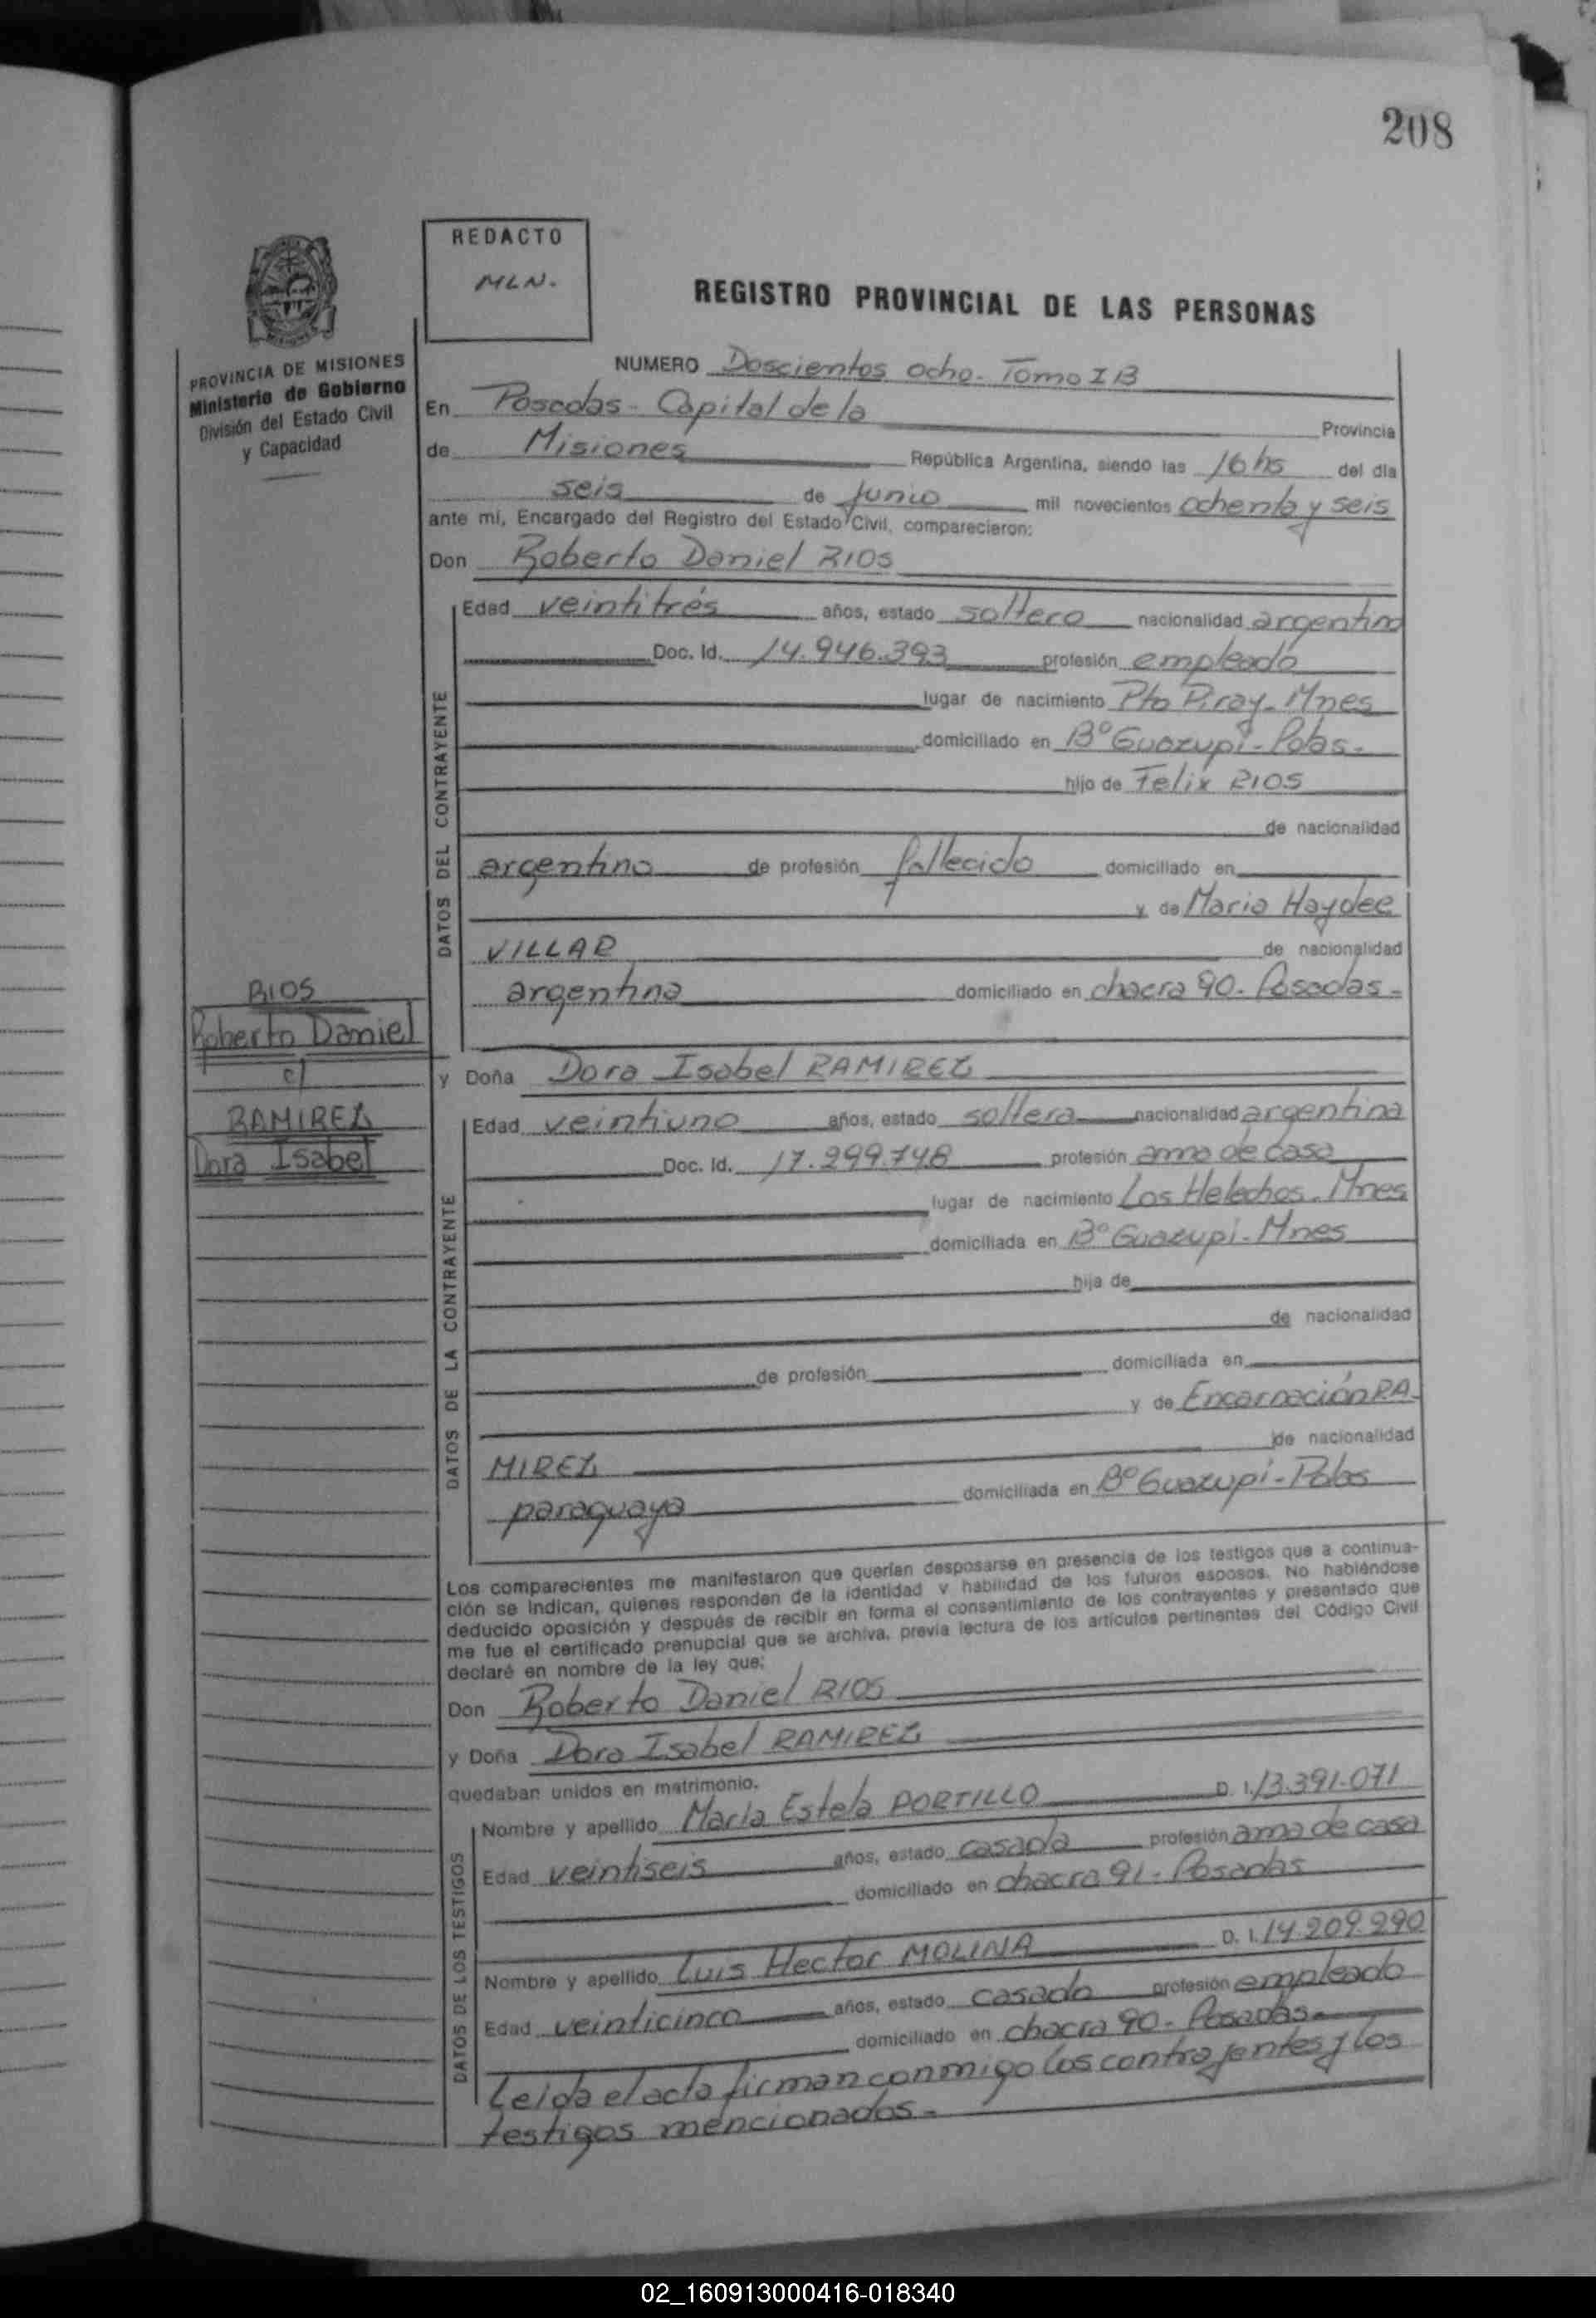 208
REDACTO
MLN.
REGISTRO PROVINCIAL DE LAS PERSONAS
PROVINCIA DE MISIONES
Ministerio de Gobierno
División del Estado Civil
y Capacidad
NUMERO Doscientos ocho. Tomo I B
En Posadas - Capital de la Provincia
de Misiones República Argentina, siendo las 16 hs del día
seis de junio mil novecientos ochenta y seis
ante mí, Encargado del Registro del Estado Civil, comparecieron:
Don Roberto Daniel RIOS
DATOS DEL CONTRAYENTE
Edad veintitrés años, estado soltero nacionalidad argentino
Doc. Id. 14.946.393 profesión empleado
lugar de nacimiento Pto Piray - Mnes
domiciliado en B° Guazupi - Pdas -
hijo de Felix RIOS
de nacionalidad
argentino de profesión fallecido domiciliado en
y de Maria Haydee
VILLAR de nacionalidad
argentina domiciliado en chacra 90 - Posadas -
RIOS
Roberto Daniel
c/
RAMIREZ
Dora Isabel
y Doña Dora Isabel RAMIREZ
DATOS DE LA CONTRAYENTE
Edad veintiuno años, estado soltera nacionalidad argentina
Doc. Id. 17.299.748 profesión ama de casa
lugar de nacimiento Los Helechos - Mnes
domiciliada en B° Guazupi - Mnes
hija de
de nacionalidad
de profesión domiciliada en
y de Encarnación RA-
MIREZ de nacionalidad
paraguaya domiciliada en B° Guazupi - Pdas
Los comparecientes me manifestaron que querían desposarse en presencia de los testigos que a continua-
ción se indican, quienes responden de la identidad y habilidad de los futuros esposos. No habiéndose
deducido oposición y después de recibir en forma el consentimiento de los contrayentes y presentado que
me fue el certificado prenupcial que se archiva, previa lectura de los artículos pertinentes del Código Civil
declaré en nombre de la ley que:
Don Roberto Daniel RIOS
y Doña Dora Isabel RAMIREZ
quedaban unidos en matrimonio.
DATOS DE LOS TESTIGOS
Nombre y apellido María Estela PORTILLO D. I. 13.391.071
Edad veintiseis años, estado casada profesión ama de casa
domiciliado en chacra 91 - Posadas
Nombre y apellido Luis Hector MOLINA D. I. 14.209.290
Edad veinticinco años, estado casado profesión empleado
domiciliado en chacra 90 - Posadas -
Leida el acta firman conmigo los contrayentes y los
testigos mencionados. -
02_160913000416-018340